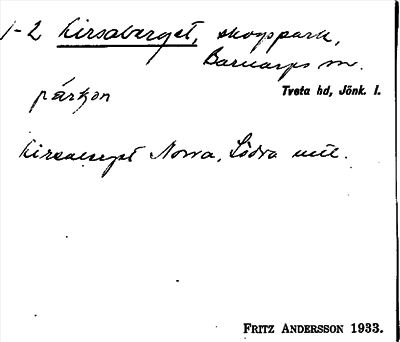 1-2 Kirsaberget, skogspark,
Barnarps sn.
Tveta hd, Jönk. l.
på kon
Kirsaberget Norra, Södra
FRITZ ANDERSSON 1933.